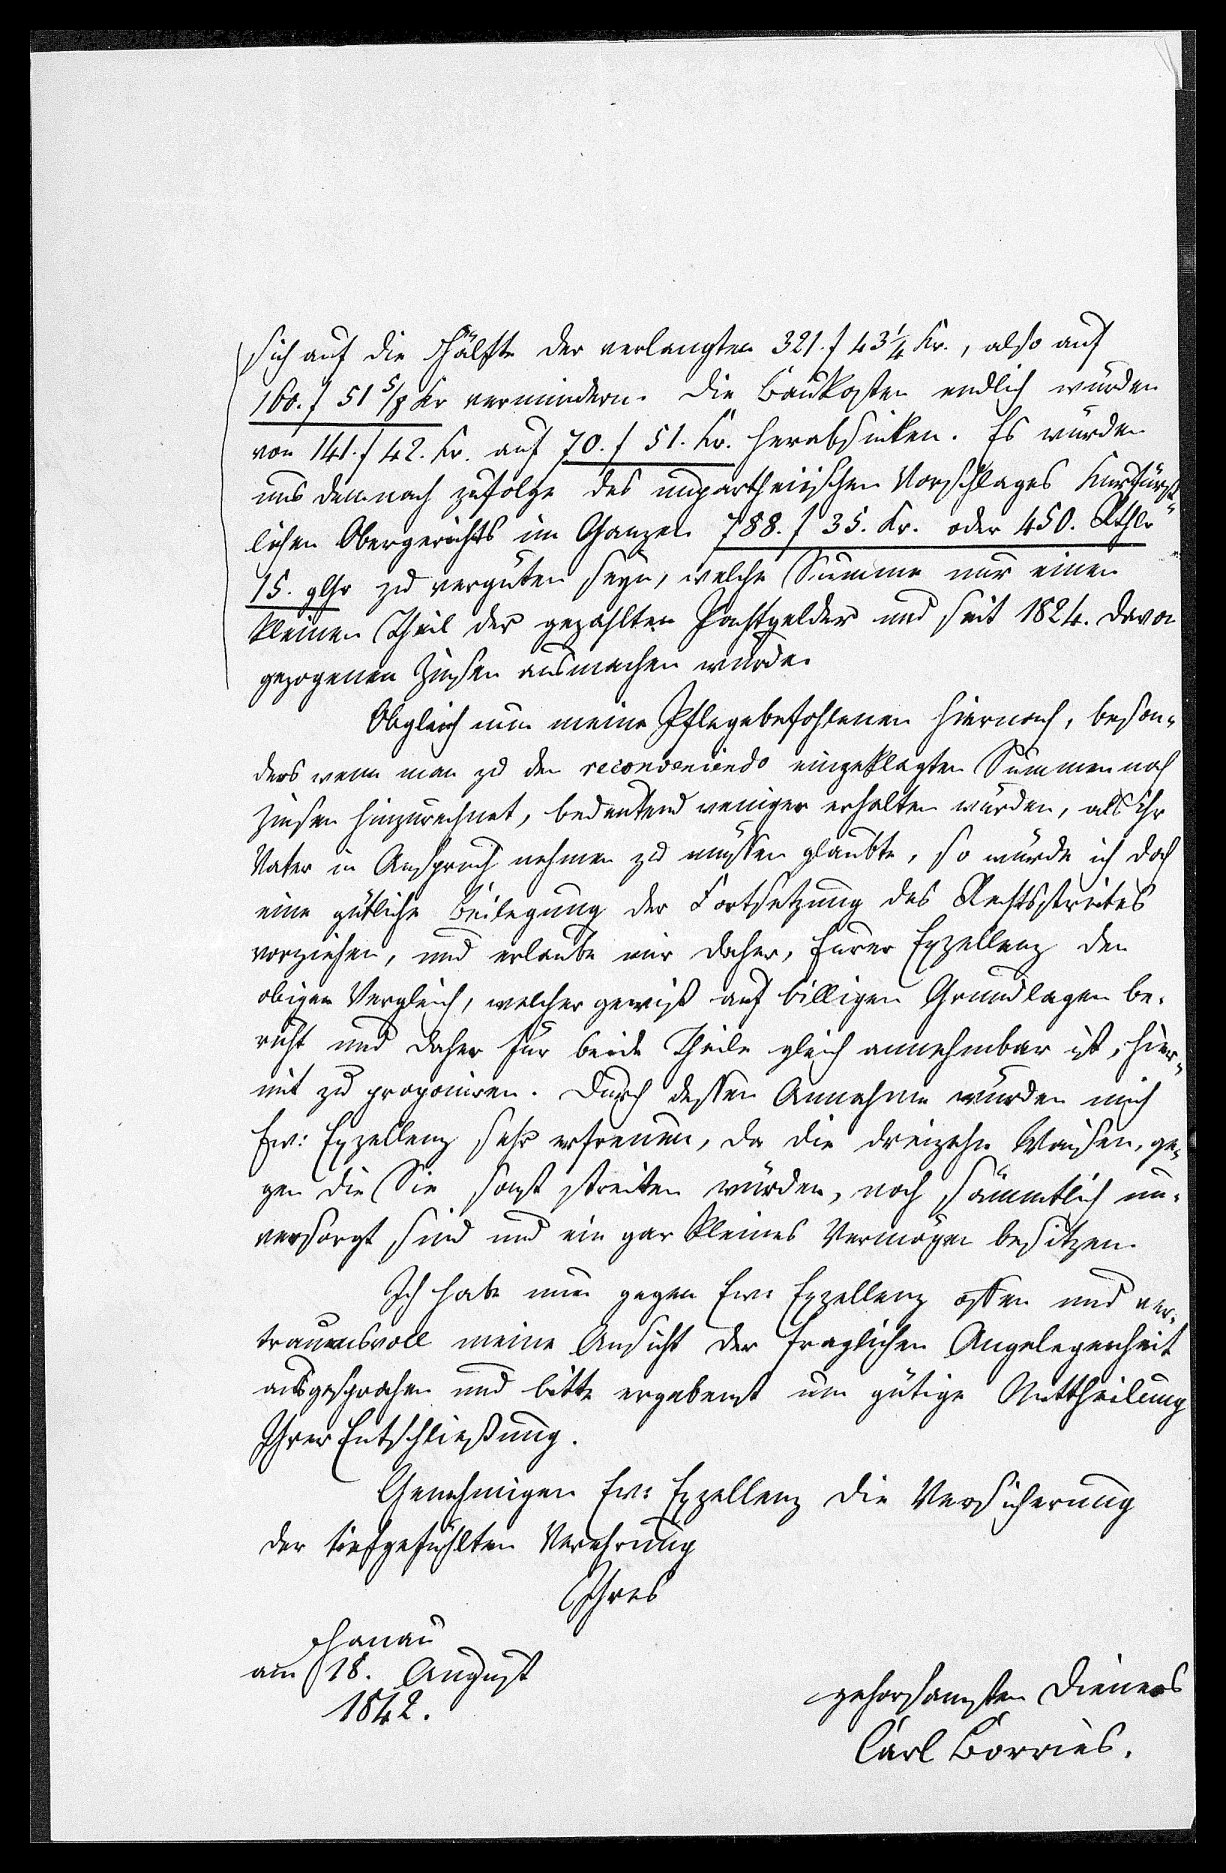 sich auf die Hälfte der verlangten 321. f 43 1/4 Kr., also auf
160. f 51 5/8 Kr vermindern. Die Baukosten endlich würden
von 141. f 42. Kr. auf 70. f 51. Kr. herabsinken. Es würden
uns demnach zufolge des unpartheiischen Vorschlages Kurfürst-
lichen Obergerichts im Ganzen 788. f 35. Kr. oder 450. Rthlr
15. gGr zu vergüten seyn, welche Summe nur einen
kleinen Theil der gezahlten Pachtgelder und seit 1824. davon
gezogenen Zinsen ausmachen würde.
Obgleich nun meine Pflegebefohlenen hiernach, beson-
ders wenn man zu den reconveniendo eingeklagten Summen noch
Zinsen hinzurechnet, bedeutend weniger erhalten würden, als ihr
Vater in Anspruch nehmen zu müssen glaubte, so würde ich doch
eine gütliche Beilegung der Fortsetzung des Rechtsstreites
vorziehen, und erlaube mir daher, Eurer Exzellenz den
obigen Vergleich, welcher gewiß auf billigen Grundlagen be-
ruht und daher für beide Theile gleich annehmbar ist, hier-
mit zu proponiren. Durch dessen Annahme würden mich
Ew: Exzellenz sehr erfreuen, da die dreizehn Waisen, ge-
gen die Sie sonst streiten würden, noch sämmtlich un-
versorgt sind und ein gar kleines Vermögen besitzen.
Ich habe nun gegen Ew: Exzellenz offen und ver-
trauensvoll meine Ansicht der fraglichen Angelegenheit
ausgesprochen und bitte ergebenst um gütige Mittheilung
Ihrer Entschließung.
Genehmigen Ew: Exzellenz die Versicherung
der tiefgefühlten Verehrung
Ihres
Hanau
am 18. August
1842.
gehorsamsten Dieners
Carl Borries.